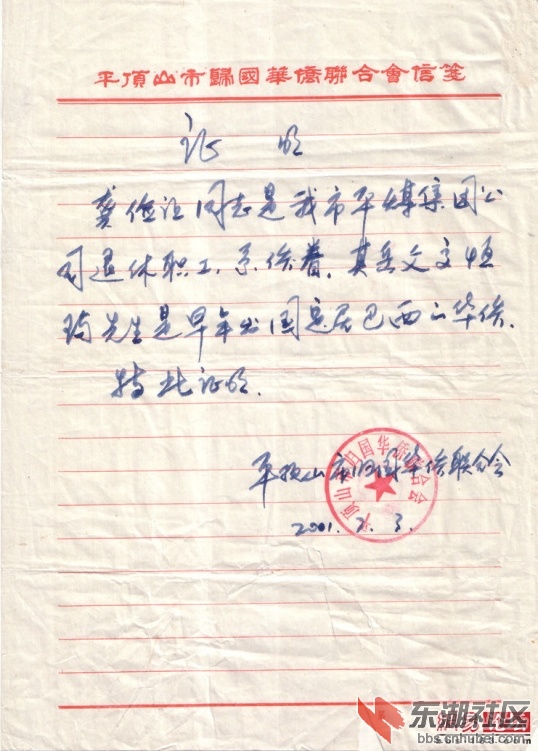 平頂山市歸國華僑聯合會信箋
证明
龚俭让同志是我市平煤集团公
司退休职工,系侨眷.其岳父文恒
琦先生是早年出国定居巴西的华侨.
特此证明.
平顶山市归国华侨联合会
平顶山市归国华侨联合会
2001.7.3.
东湖社区
bbs.cnhubei.com